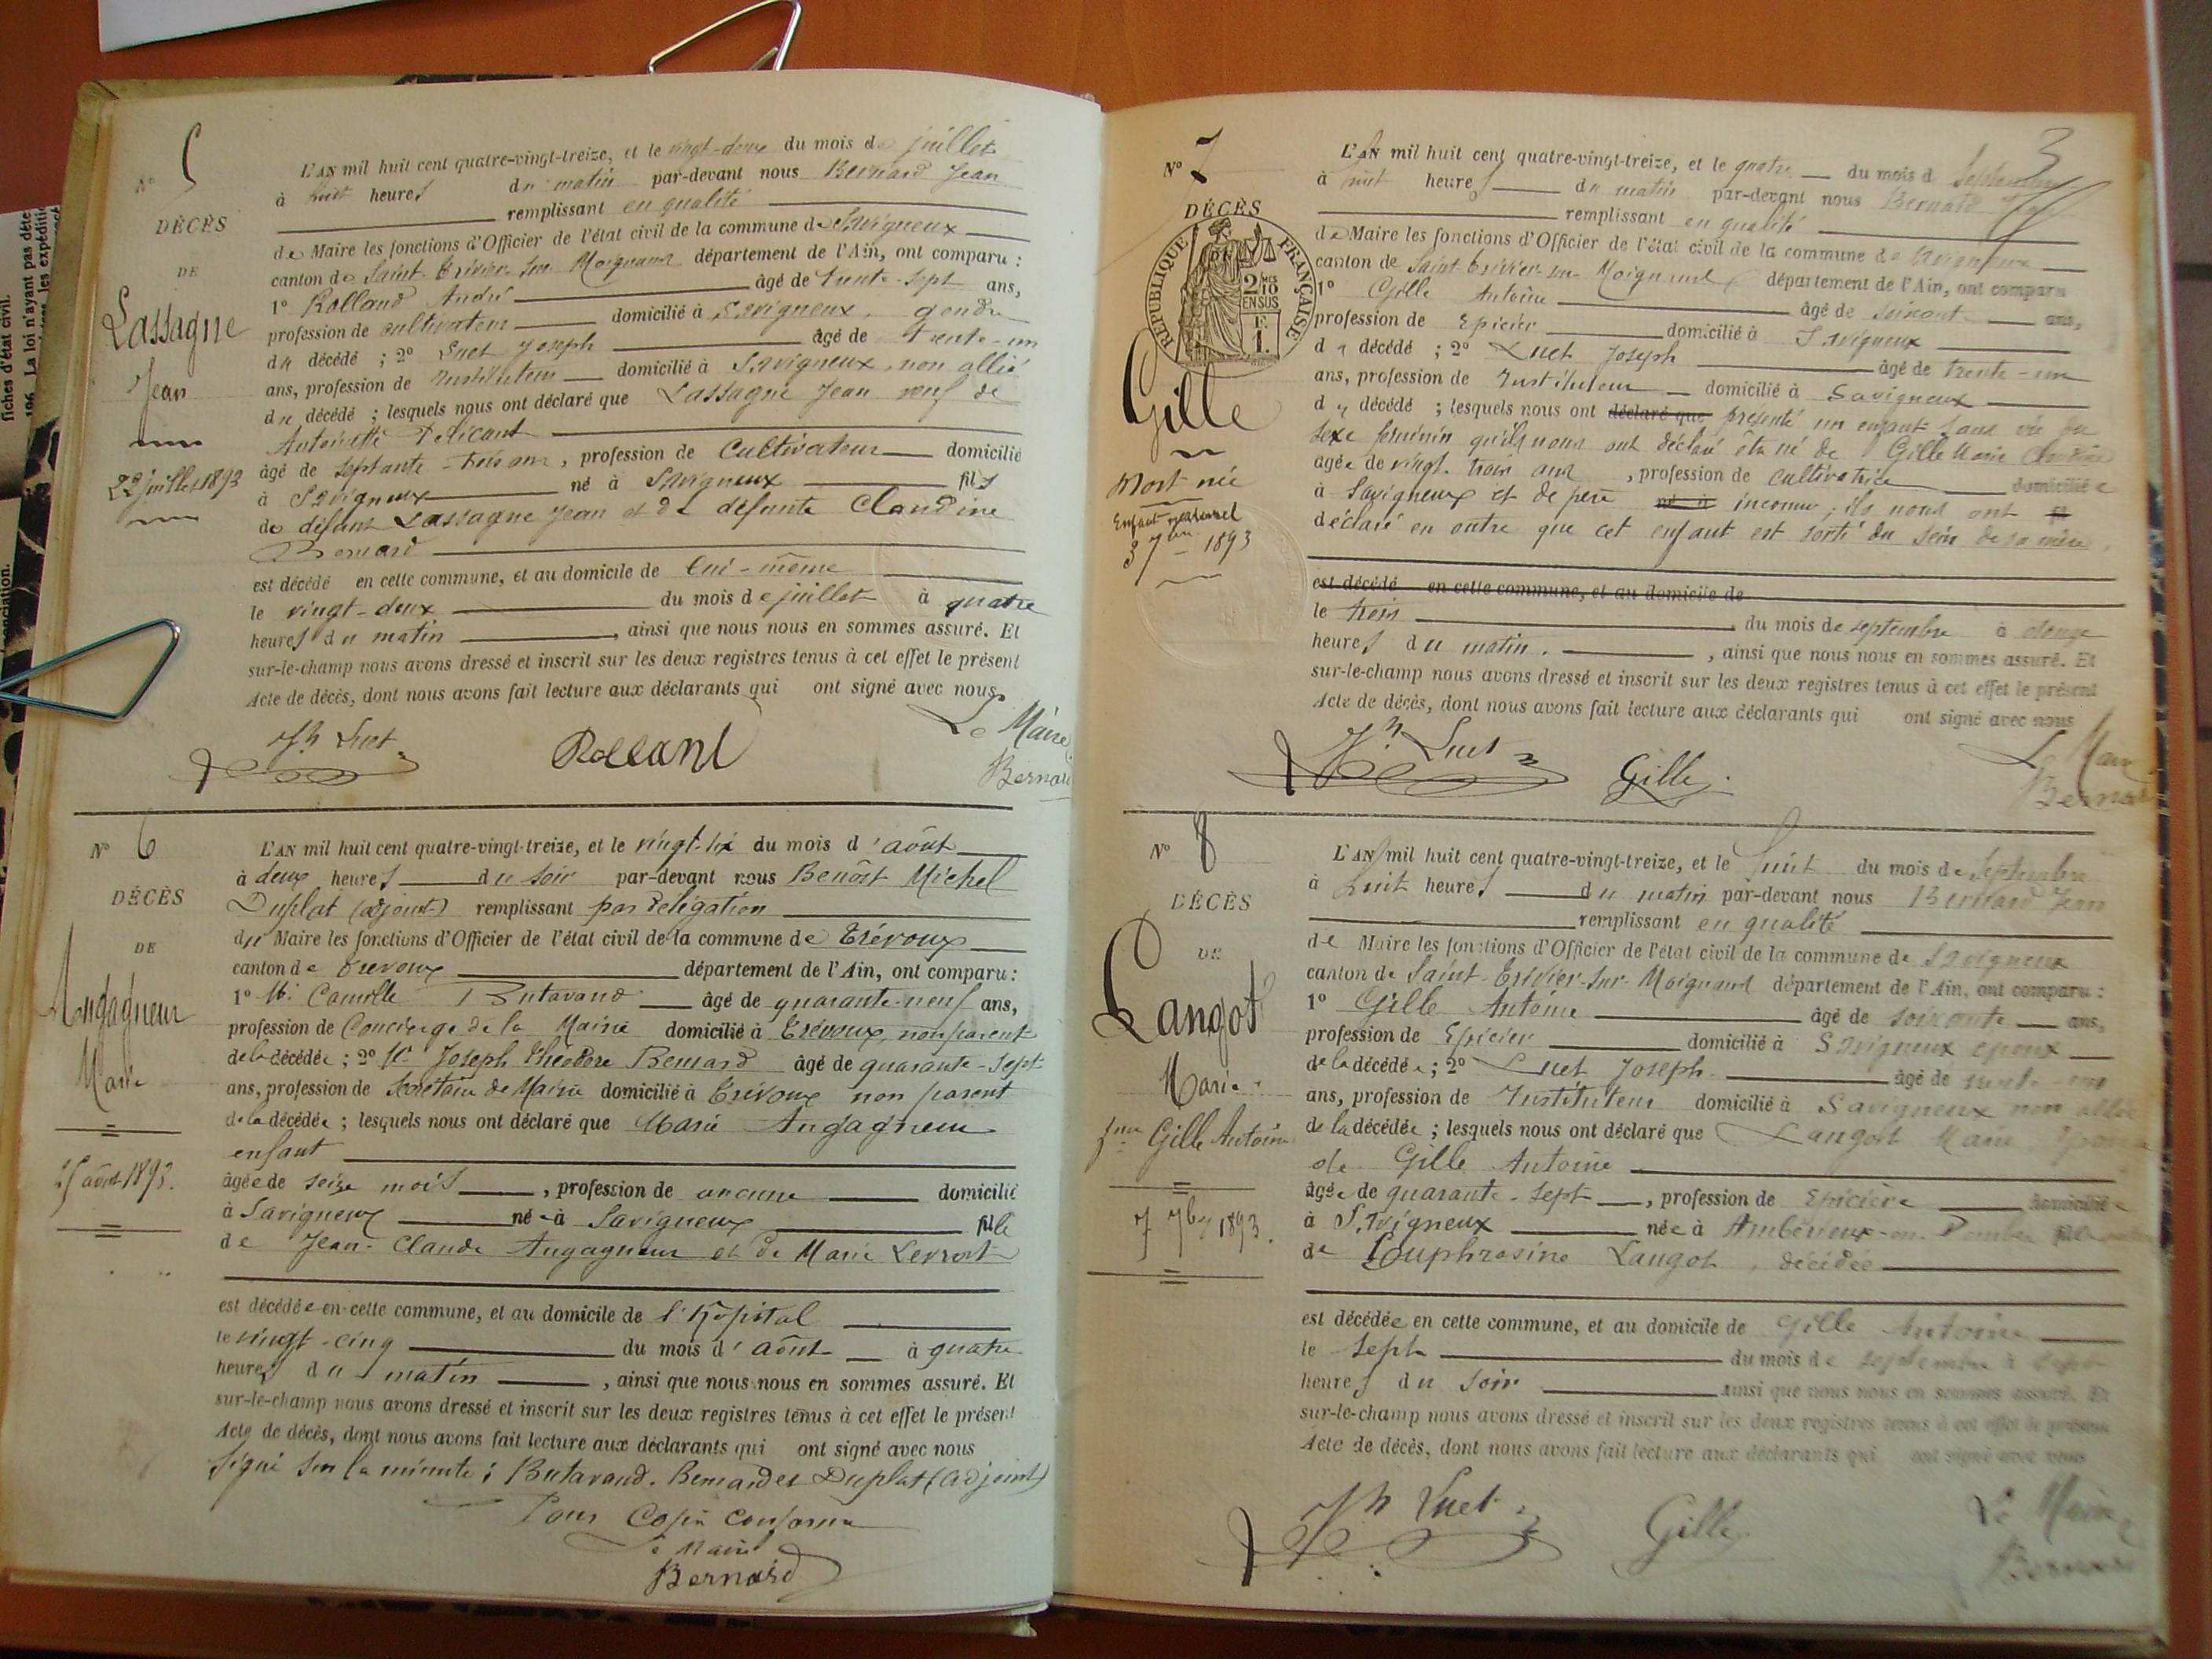 fiches d'état civil.
196. La loi n'ayant pas déte
N° 5
DÉCÈS
DE
Lassagne
Jean
22 juillet 1893
L'AN mil huit cent quatre-vingt-treize, et le vingt-deux du mois de juillet
à huit heures du matin par-devant nous Bernard Jean
remplissant en qualité
de Maire les fonctions d'Officier de l'état civil de la commune de Savigneux
canton de Saint-Trivier-sur-Moignans département de l'Ain, ont comparu :
1° Rolland André âgé de trente-sept ans,
profession de cultivateur domicilié à Savigneux, gendre
du décédé ; 2° Luet Joseph âgé de trente-un
ans, profession de Instituteur domicilié à Savigneux, non allié
du décédé ; lesquels nous ont déclaré que Lassagne Jean veuf de
Antoinette
âgé de septante-trois ans, profession de Cultivateur domicilié
à Savigneux né à Savigneux fils
de défunt Lassagne Jean et de défunte Claudine
Bernard
est décédé en cette commune, et au domicile de lui-même
le vingt-deux du mois de juillet à quatre
heures du matin, ainsi que nous nous en sommes assuré. Et
sur-le-champ nous avons dressé et inscrit sur les deux registres tenus à cet effet le présent
Acte de décès, dont nous avons fait lecture aux déclarants qui ont signé avec nous.
Jh Luet Rolland Le Maire
Bernard
N° 6
DÉCÈS
DE
Augagneur
Marie
25 août 1893.
L'AN mil huit cent quatre-vingt-treize, et le vingt-six du mois d'août
à deux heures du soir par-devant nous Benoît Michel
Duplat (adjoint) remplissant par délégation
du Maire les fonctions d'Officier de l'état civil de la commune de Trévoux
canton de Trévoux département de l'Ain, ont comparu :
1° Mr Camille Butavand âgé de quarante-neuf ans,
profession de Concierge de la Mairie domicilié à Trévoux, non parent
de la décédée ; 2° Mr Joseph Théodore Bernard âgé de quarante-sept
ans, profession de Secrétaire de Mairie domicilié à Trévoux non parent
de la décédée ; lesquels nous ont déclaré que Marie Augagneur
enfant
âgée de seize mois, profession de aucune domicilié
à Savigneux née à Savigneux fille
de Jean-Claude Augagneur et de Marie
est décédée en cette commune, et au domicile de l'hôpital
le vingt-cinq du mois d'août à quatre
heures du matin, ainsi que nous nous en sommes assuré. Et
sur-le-champ nous avons dressé et inscrit sur les deux registres tenus à cet effet le présent
Acte de décès, dont nous avons fait lecture aux déclarants qui ont signé avec nous
signé sur la minute : Butavand. Bernard et Duplat (adjoint)
Pour Copie conforme
Le Maire
Bernard
3
N° 7
DÉCÈS
RÉPUBLIQUE FRANÇAISE
2/10 EN SUS
F. 1.
Gille
Mort née
Enfant naturel
3 7bre 1893
L'AN mil huit cent quatre-vingt-treize, et le quatre du mois d Septembre
à huit heures du matin par-devant nous Bernard Jean
remplissant en qualité
de Maire les fonctions d'Officier de l'état civil de la commune de Savigneux
canton de Saint-Trivier-sur-Moignans, département de l'Ain, ont comparu
1° Gille Antoine âgé de soixante ans,
profession de Epicier domicilié à Savigneux
d décédé ; 2° Luet Joseph âgé de trente-un
ans, profession de Instituteur domicilié à Savigneux
d décédé ; lesquels nous ont déclaré que présenté un enfant sans vie du
sexe féminin qu'ils nous ont déclaré être né de Gille Marie
agée de vingt-trois ans, profession de cultivatrice domiciliée
à Savigneux et de père né à inconnu ; ils nous ont fil
déclaré en outre que cet enfant est sorti du sein de sa mère,
est décédé en cette commune, et au domicile de
le trois du mois de septembre à onze
heures du matin, ainsi que nous nous en sommes assuré. Et
sur-le-champ nous avons dressé et inscrit sur les deux registres tenus à cet effet le présent
Acte de décès, dont nous avons fait lecture aux déclarants qui ont signé avec nous
Jh Luet Gille Le Maire
Bernard
N° 8
DÉCÈS
DE
Langot
Marie
fme Gille Antoine
7 7bre 1893.
L'AN mil huit cent quatre-vingt-treize, et le huit du mois de Septembre
à huit heures du matin par-devant nous Bernard Jean
remplissant en qualité
de Maire les fonctions d'Officier de l'état civil de la commune de Savigneux
canton de Saint-Trivier-sur-Moignans département de l'Ain, ont comparu :
1° Gille Antoine âgé de soixante ans,
profession de Epicier domicilié à Savigneux époux
de la décédée ; 2° Luet Joseph âgé de trente-un
ans, profession de Instituteur domicilié à Savigneux non allié
de la décédée ; lesquels nous ont déclaré que Langot Marie épouse
de Gille Antoine
âgée de quarante-sept, profession de Epicière domiciliée
à Savigneux née à Ambérieux-en-Dombes
de Euphrosine Langot, décédée
est décédée en cette commune, et au domicile de Gille Antoine
le sept du mois de septembre à sept
heures du soir ainsi que nous nous en sommes assuré. Et
sur-le-champ nous avons dressé et inscrit sur les deux registres tenus à cet effet le présent
Acte de décès, dont nous avons fait lecture aux déclarants qui ont signé avec nous
Jh Luet Gille Le Maire
Bernard